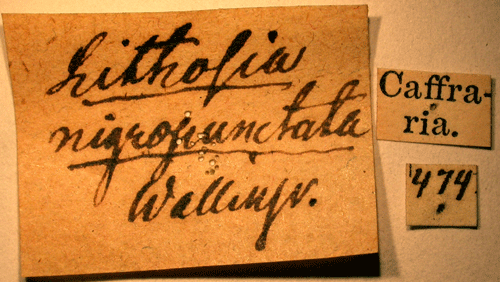 Lithosia
nigropunctata
Wallengr.
Caffra-
ria.
474